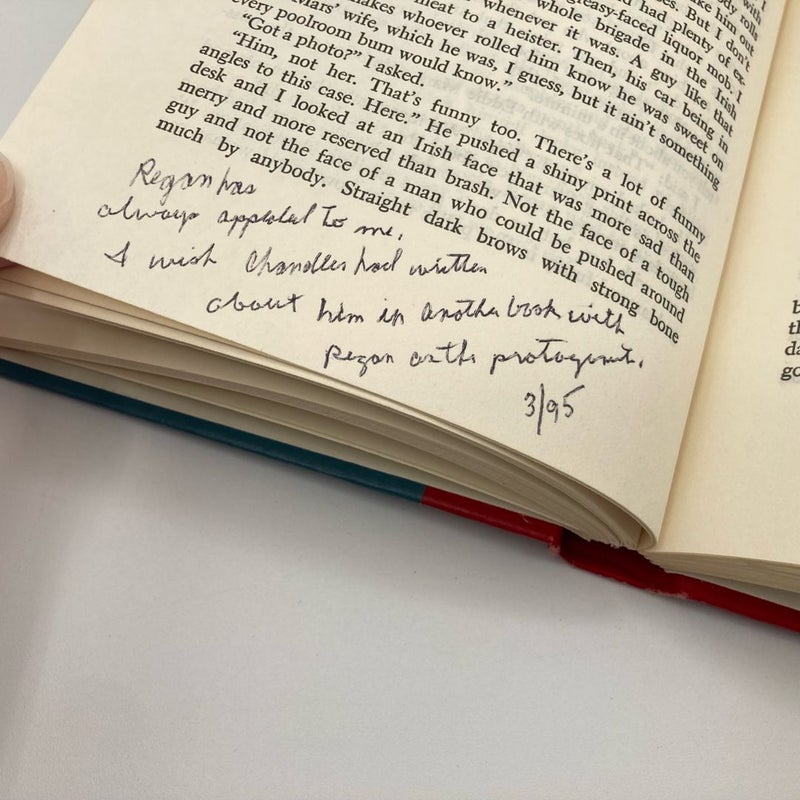 with
rolls
him out
But I don't
had plenty of
greasy-faced liquor mob. I
whole brigade in the Irish
whenever it was. A guy like that
meat to a heister. Then, his car being in
makes whoever rolled him know he was sweet on
Mars' wife, which he was, I guess, but it ain't something
every poolroom bum would know."
"Got a photo?" I asked.
"Him, not her. That's funny too. There's a lot of funny
angles to this case. Here." He pushed a shiny print across the
desk and I looked at an Irish face that was more sad than
merry and more reserved than brash. Not the face of a tough
guy and not the face of a man who could be pushed around
much by anybody. Straight dark brows with strong bone
Regan has
always appealed to me.
I wish Chandler had written
about him in another book with
Regan as the protagonist.
3/95